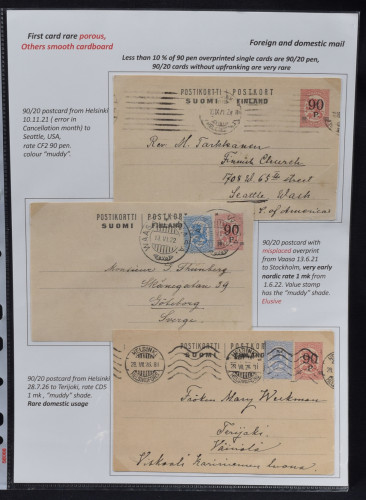 First card rare porous,
Others smooth cardboard
Foreign and domestic mail
Less than 10 % of 90 pen overprinted single cards are 90/20 pen,
90/20 cards without upfranking are very rare
90/20 postcard from Helsinki
10.11.21 ( error in
Cancellation month) to
Seattle, USA,
rate CF2 90 pen.
colour "muddy".
POSTIKORTTI POSTKORT
SUOMI FINLAND
90
P.
Rev. M. Tarkkanen
Finnish Church
1708 W. 65th street
Seattle Wash.
U.S. of America
POSTIKORTTI POSTKORT
SUOMI FINLAND
90
P.
Monsieur S. Thunberg
Skånegatan 39
Göteborg
Sverge.
90/20 postcard with
misplaced overprint
from Vaasa 13.6.21
to Stockholm, very early
nordic rate 1 mk from
1.6.22. Value stamp
has the "muddy" shade.
Elusive
90/20 postcard from Helsinki
28.7.26 to Terijoki, rate CD5
1 mk , "muddy" shade.
Rare domestic usage
HELSINKI
POSTIKORTTI POSTKORT
SUOMI FINLAND
90
P.
Fröken Mary Weckman
Terijoki